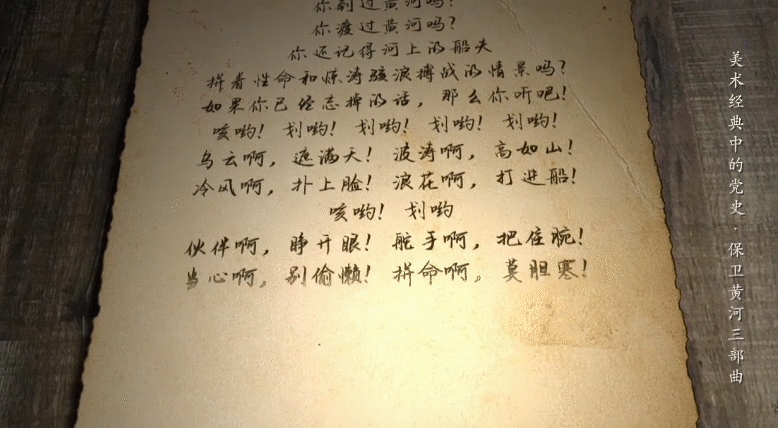 你到过黄河吗？
你渡过黄河吗？
你还记得河上的船夫
拼着性命和惊涛骇浪搏战的情景吗？
如果你已经忘掉的话，那么你听吧！
咳哟！划哟！划哟！划哟！划哟！
乌云啊，遮满天！波涛啊，高如山！
冷风啊，扑上脸！浪花啊，打进船！
咳哟！划哟
伙伴啊，睁开眼！舵手啊，把住腕！
当心啊，别偷懒！拼命啊，莫胆寒！
美术经典中的党史·保卫黄河三部曲